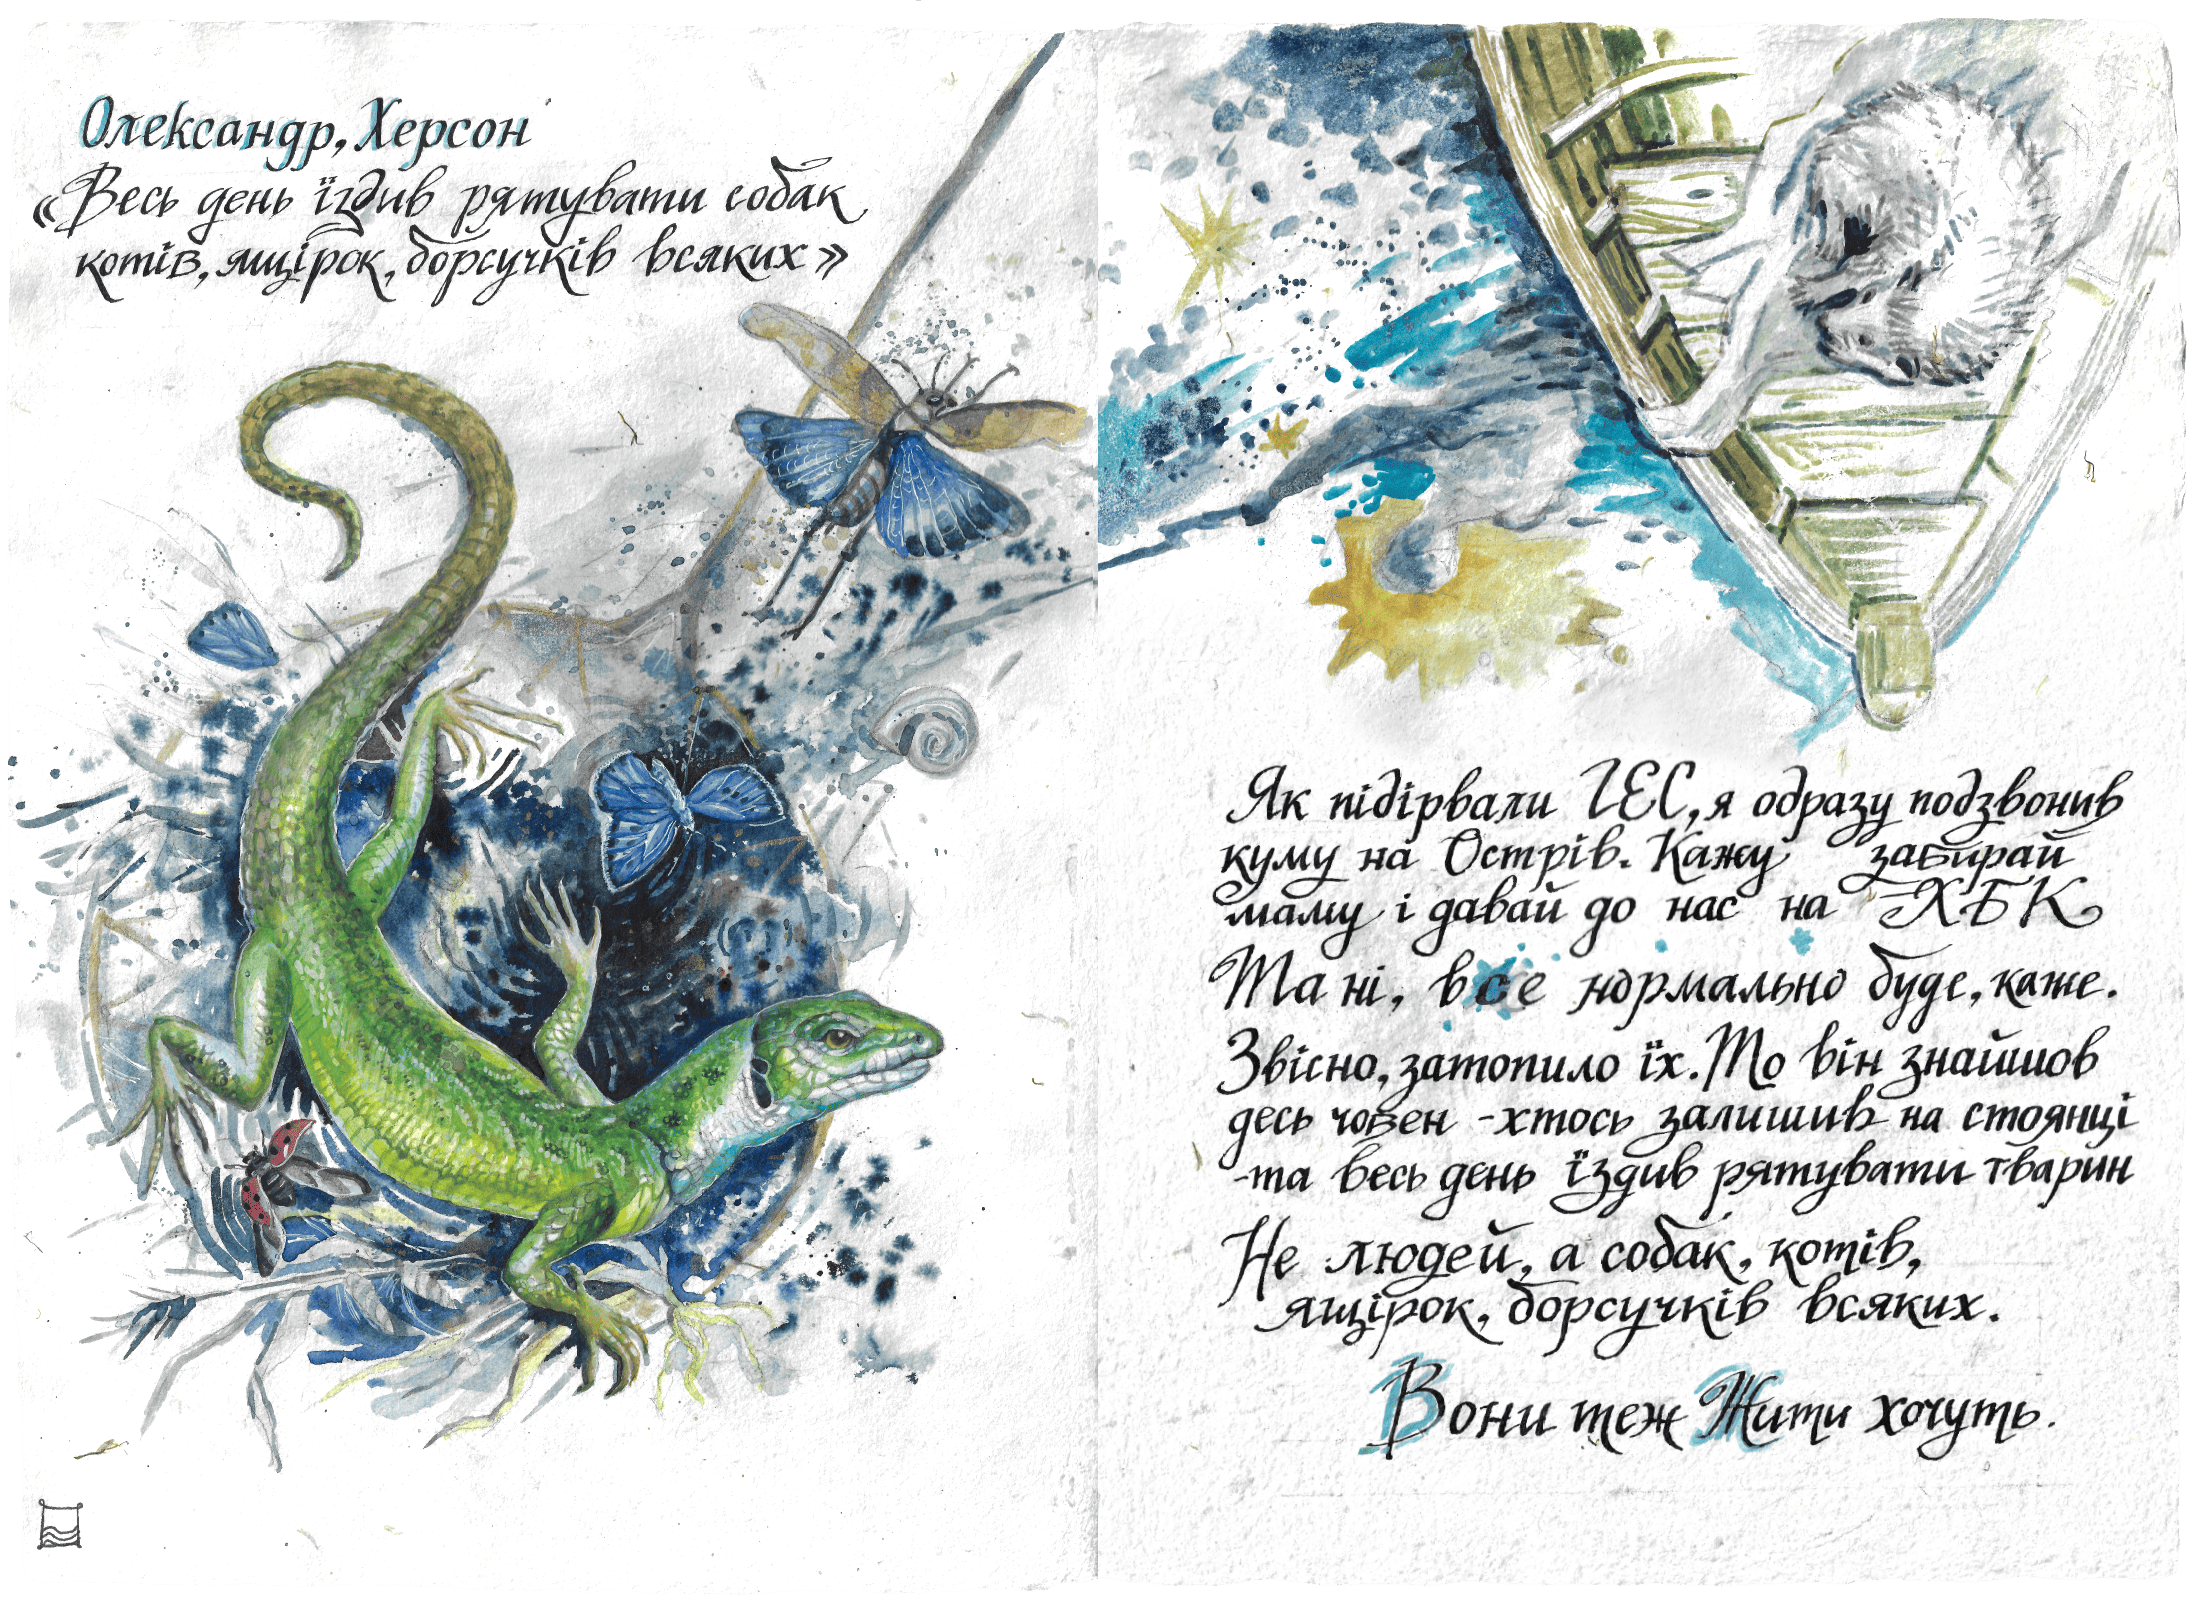 Олександр, Херсон
«Весь день їздив рятувати собак
котів, ящірок, борсучків всяких»
Як підірвали ГЕС, я одразу подзвонив
куму на Острів. Кажу забирай
маму і давай до нас на ХБК
Та ні, все нормально буде, каже.
Звісно, затопило їх. То він знайшов
десь човен - хтось залишив на стоянці
- та весь день їздив рятувати тварин
Не людей, а собак, котів,
ящірок, борсучків всяких.
Вони теж Жити хочуть.